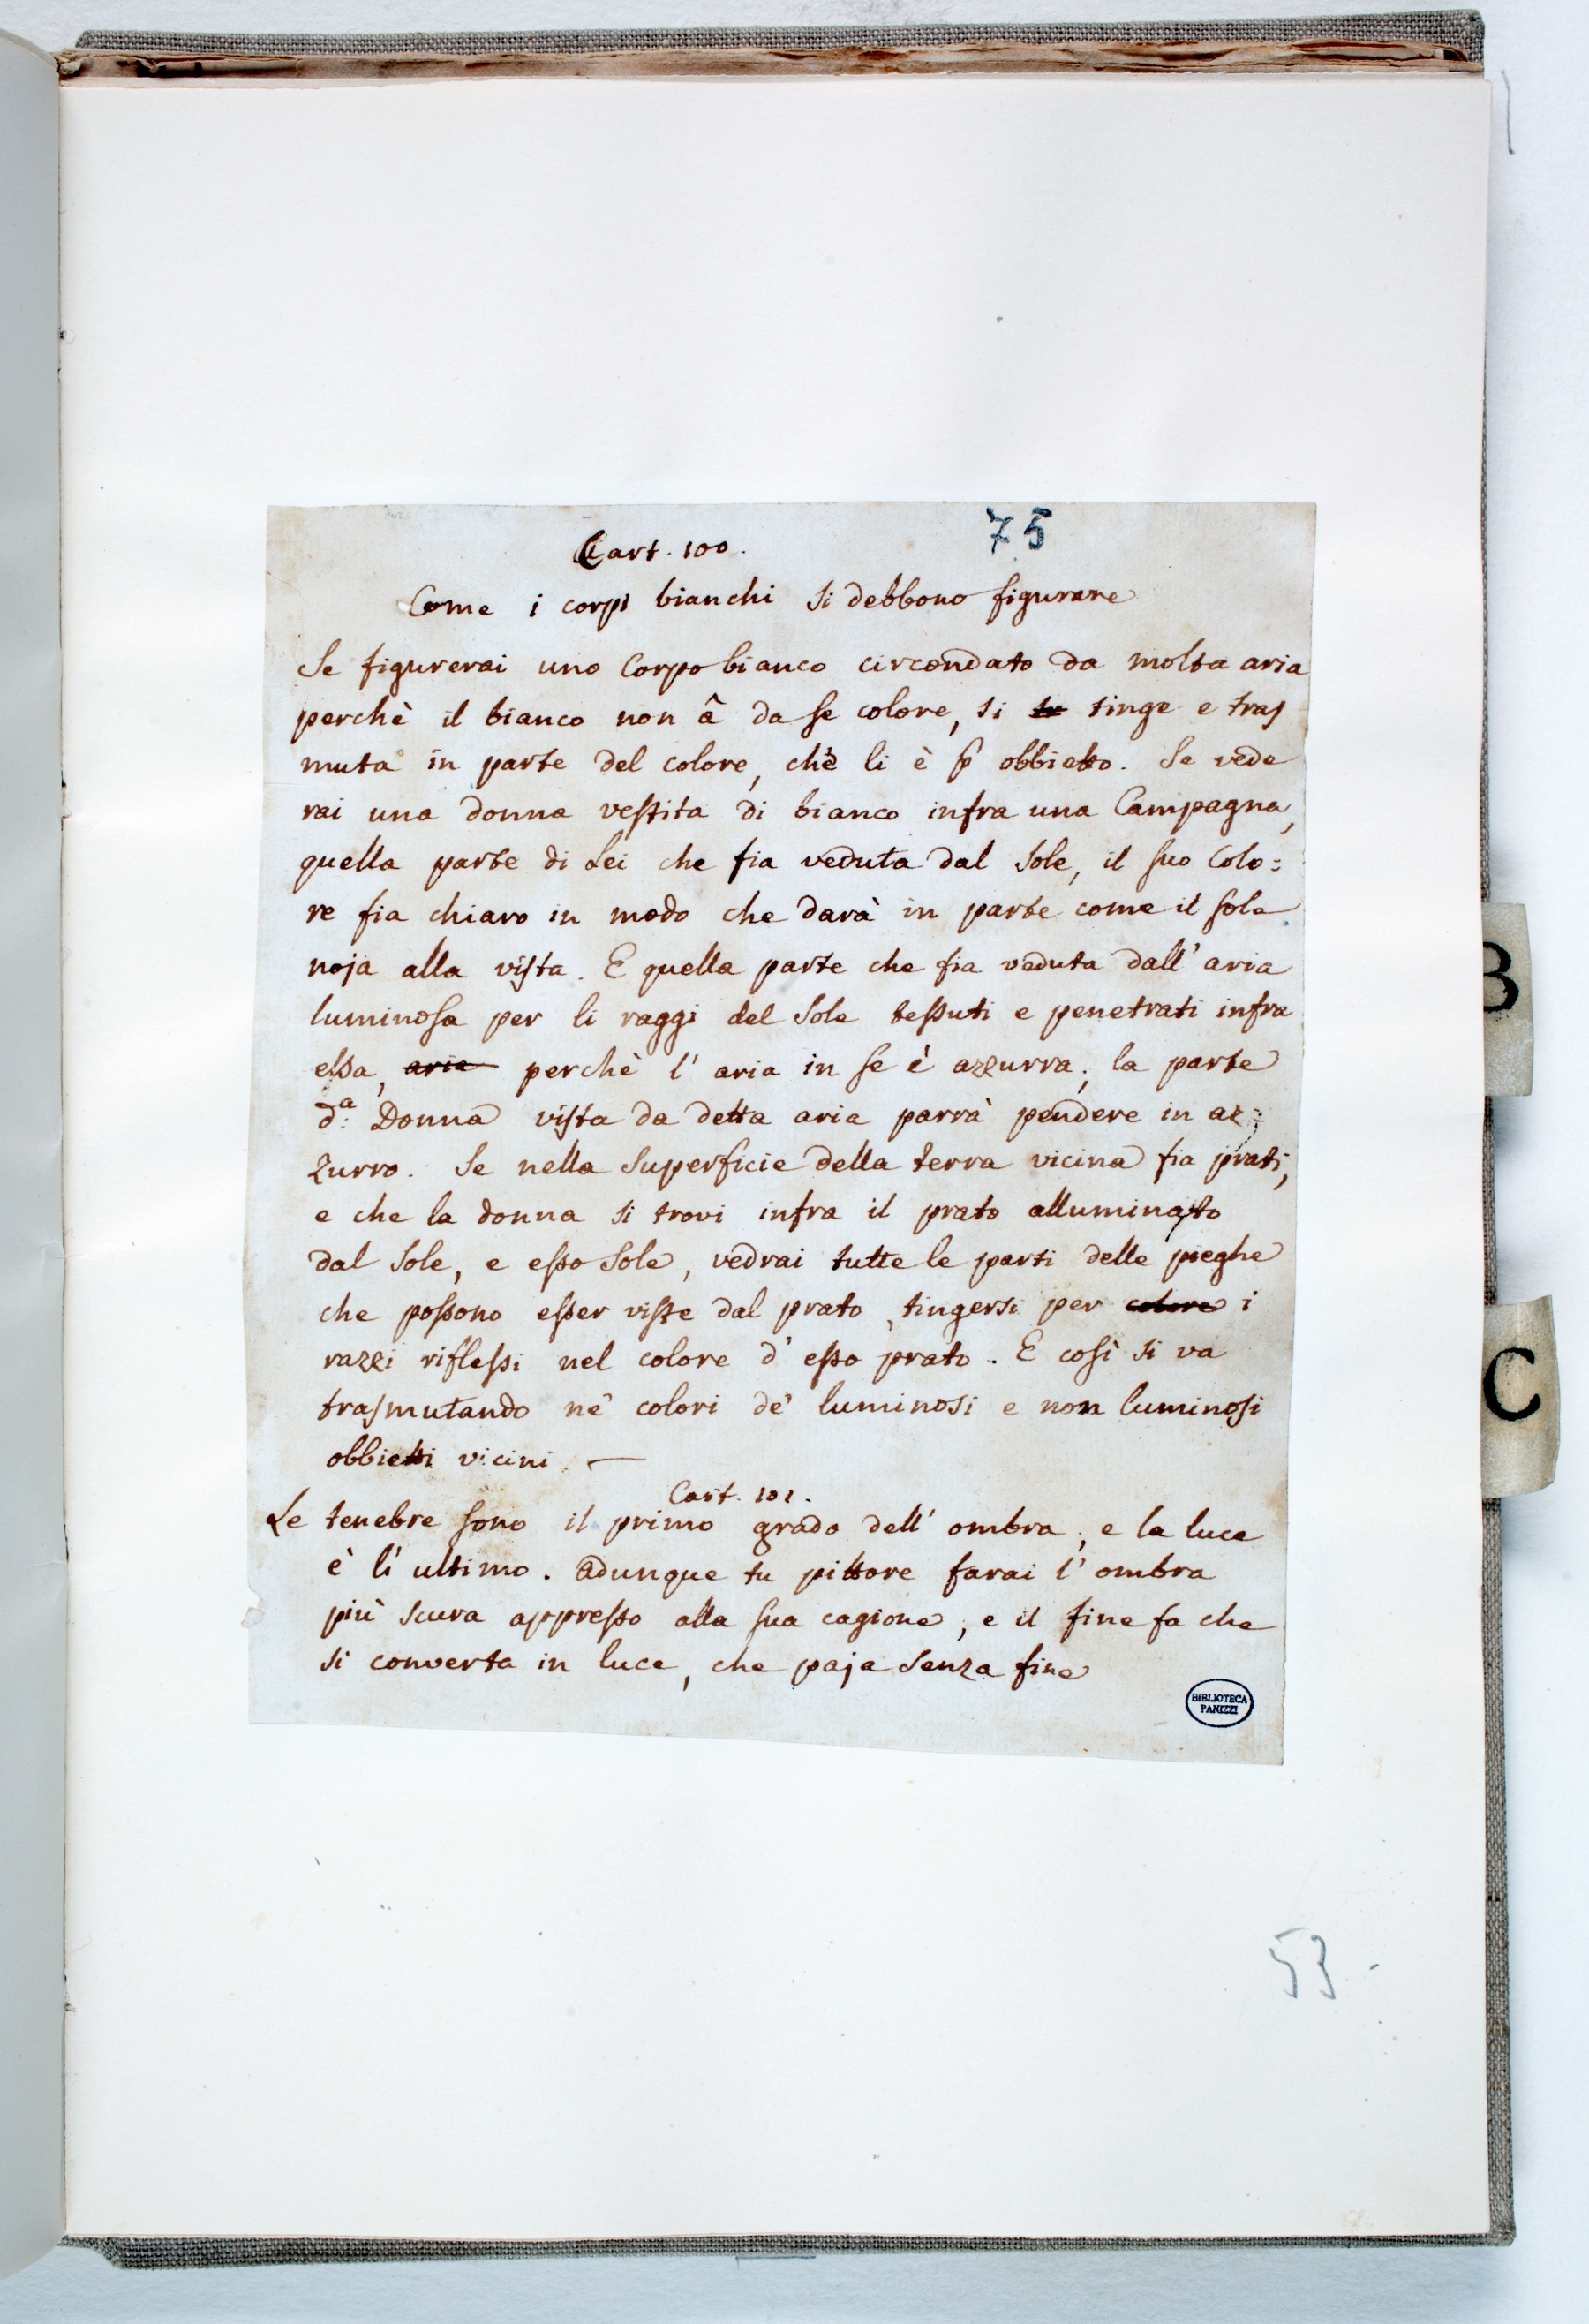 75
Cart. 100.
Come i corpi bianchi si debbono figurare
Se figurerai uno Corpo bianco circondato da molta aria
perchè il bianco non â da se colore, si tu tinge e tras
muta in parte del colore, chè li è p obbietto. Se vede
rai una donna vestita di bianco infra una Campagna,
quella parte di Lei che fia veduta dal Sole, il suo Colo=
re fia chiaro in modo che darà in parte come il sole
noja alla vista. E quella parte che fia veduta dall' aria
luminosa per li raggi del Sole tessuti e penetrati infra
essa, aria perchè l' aria in se è azzurra; la parte
d.a Donna vista da detta aria parrà pendere in az=
zurro. Se nella Superficie della terra vicina fia prati,
e che la donna si trovi infra il prato alluminato
dal Sole, e esso Sole, vedrai tutte le parti delle pieghe
che possono esser viste dal prato, tingersi per colore i
razzi riflessi nel colore d' esso prato. E così si va
trasmutando ne' colori de' luminosi e non luminosi
obbietti vicini. —
Cart. 101.
Le tenebre sono il primo grado dell' ombra, e la luce
è li' ultimo. adunque tu pittore farai l' ombra
più scura appresso alla sua cagione, e il fine fa che
si converta in luce, che paja senza fine
BIBLIOTECA
PANIZZI
53
B
C